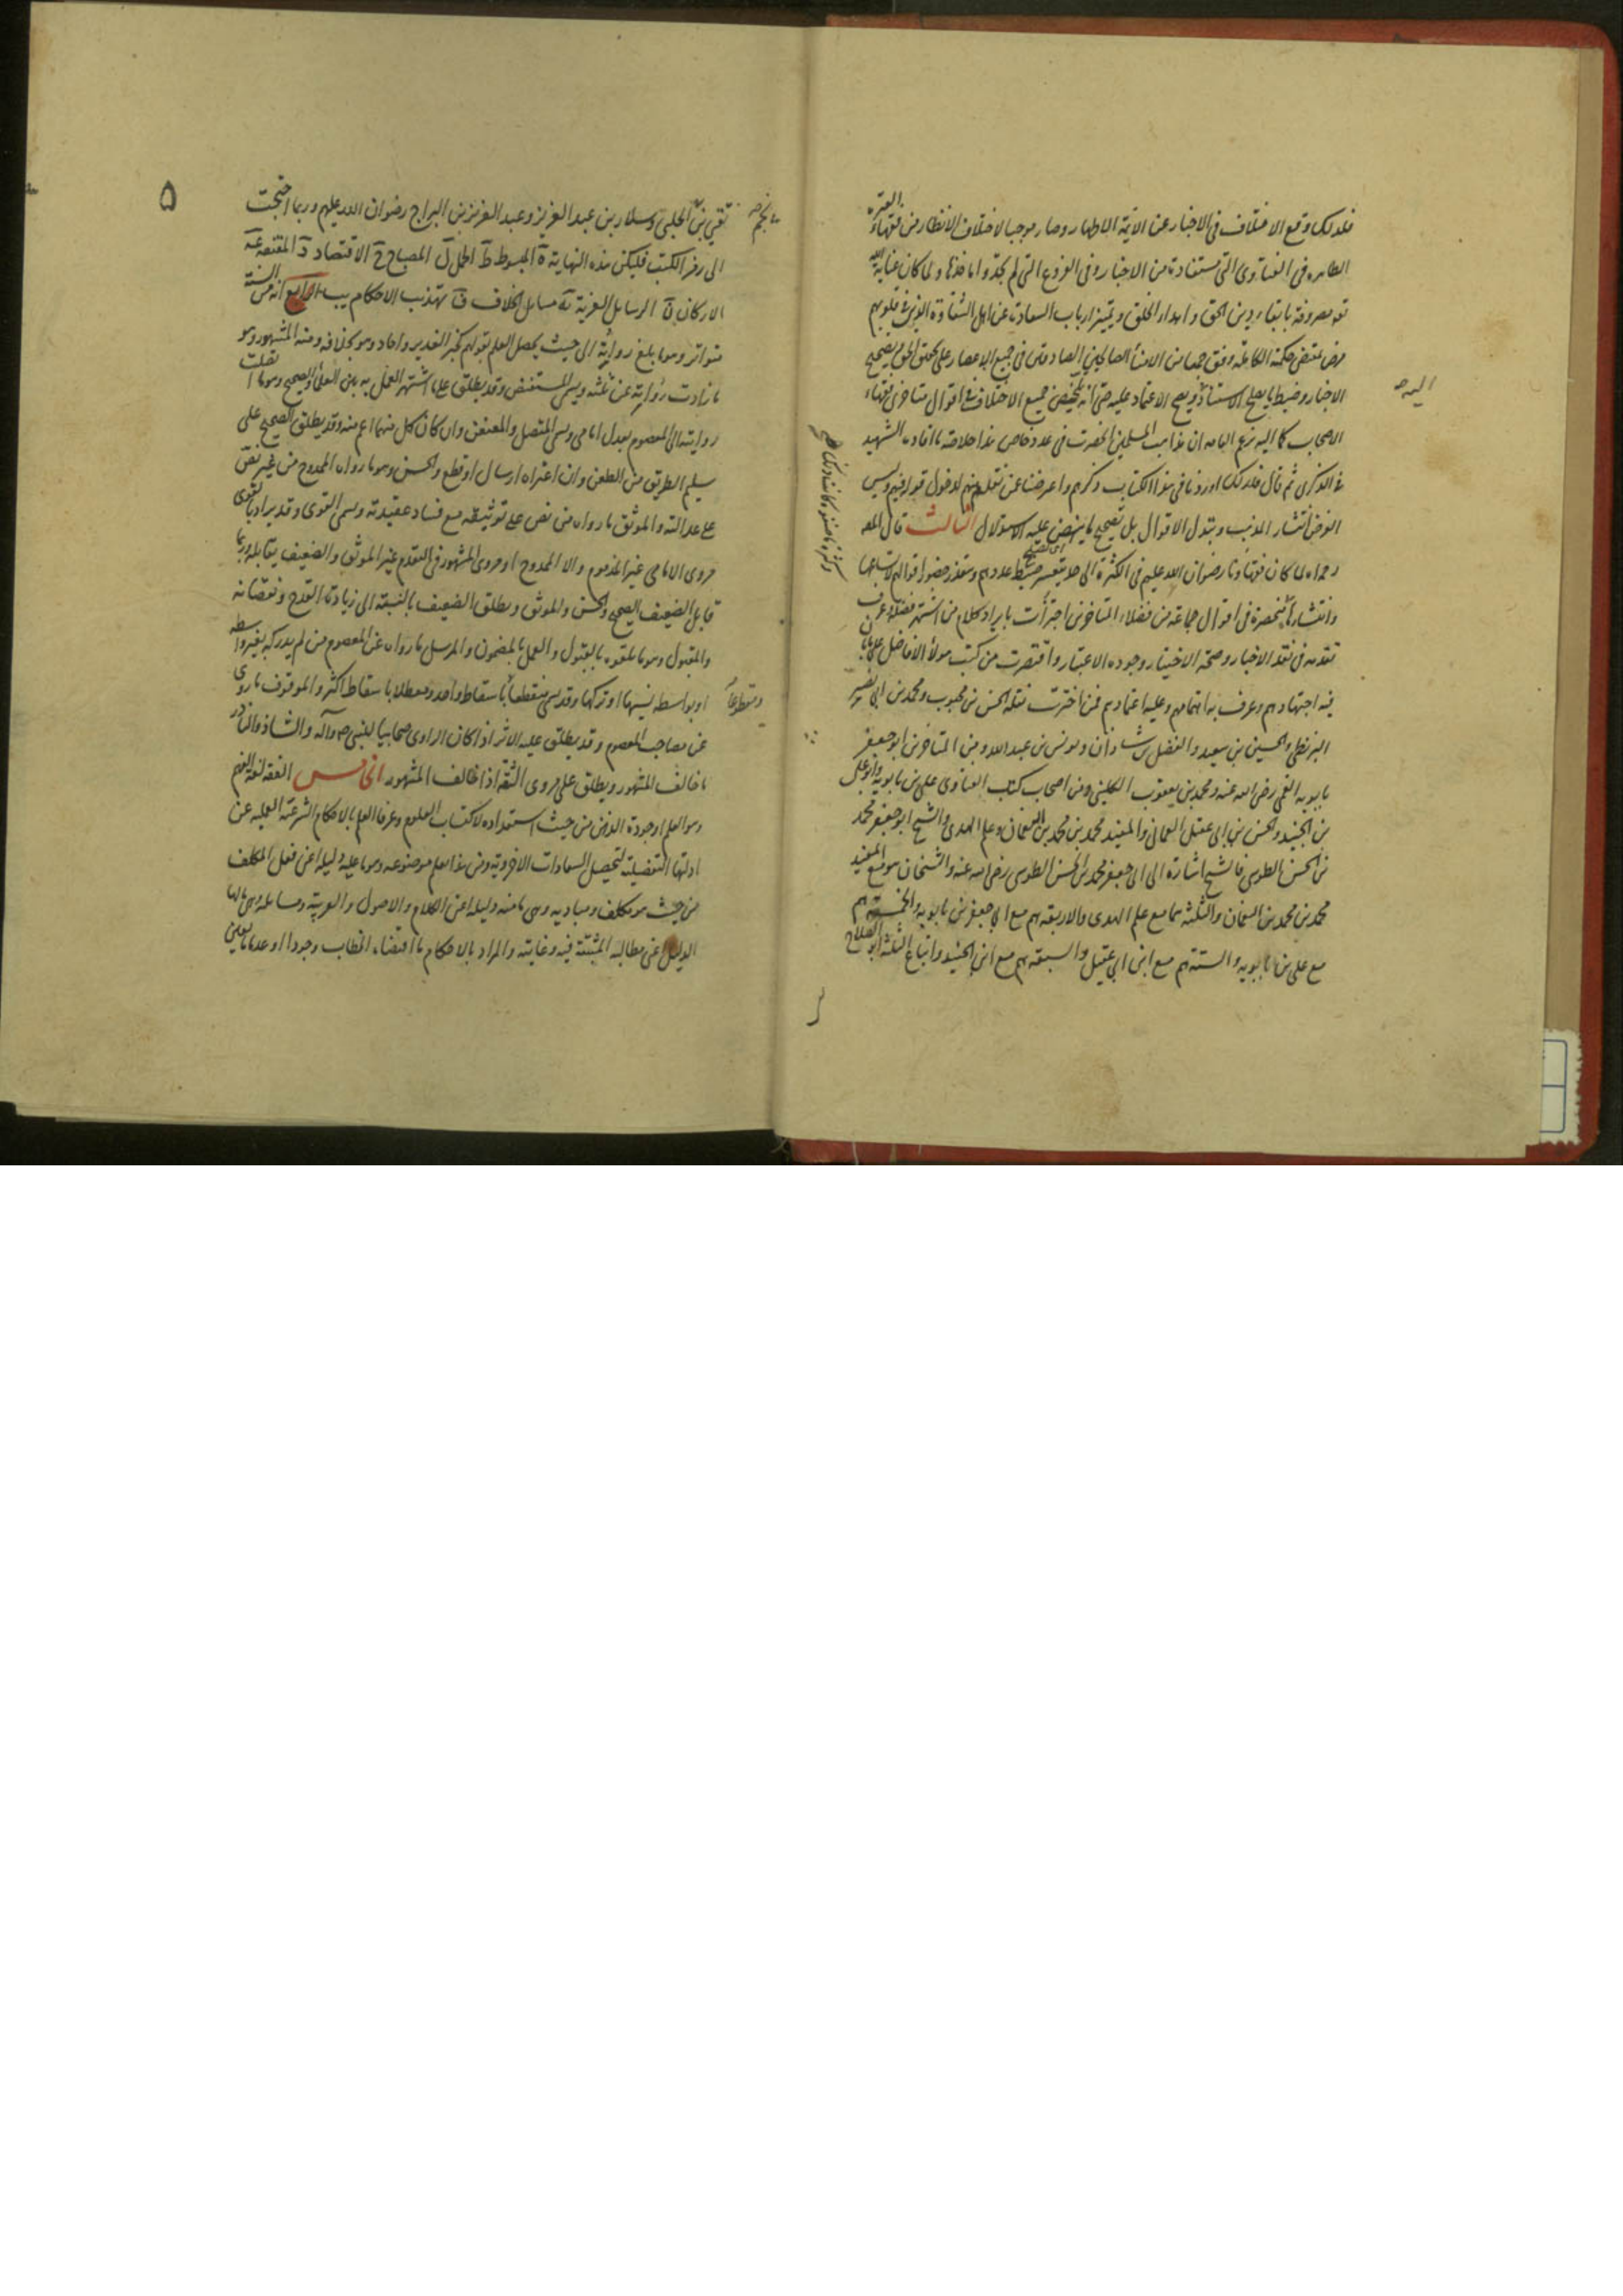 فلذلك وقع الاختلاف فى الاخبار عن الائمة الاطهار وصار موجبا لاختلاف الانظار من فقهاء العترة
الطاهرة فى الفتاوى التى مستفادة من الاخبار وفى الفروع التى لم يجدوا ماخذها ولما كان عناية الله
تعه مصروفة بابقاء دين الحق و اهداء الخلق وتميز ارباب السعادت عن اهل الشقاوة الذين فى قلوبهم
مرض بمقتضى حكمته الكاملة وفق جمعا من الامناء الصالحين الصادقين فى جميع الاعصار على تحقيق الحق بتصحيح
الاخبار وضبط ما يصلح الاستناد ويصح الاعتماد عليه حتى انه جميع الاختلاف فى اقوال متاخرى فقهاء
اليه صح
الاصحاب كما اليه زعم العامه ان مذاهب المسلمين انحصرت فى عدد خاص هذا خلاصة ما افاده الشهيد
فى الذكرى ثم قال فلذلك اوردنا فى هذا الكتاب ذكرهم واعرضنا عن لدخول قولهم وليس
الغرض انتشار المذهب وبتدل الاقوال بل تصحيح ما ينهض عليه الاستدلال الثالث قال المصه
رحمه الله لما كان فقهاؤنا رضوان الله عليهم فى الكثرة الى حد يتعسر ضبط عددهم وتعذر حضور اقوالهم لاتساعها
وانتشارها منحصرة فى اقوال جماعة من فضلاء المتاخرين اجتزأت بايراد كلام من اشتهر فضله وعرف
تقدمه فى نقد الاخبار وصحة الاختيار وجوده الاعتبار واقتصرت من كتب هولاء الافاضل على ما بان
فيه اجتهادهم وعرف به اهتمامهم وعليه اعتمادهم فمن اخترت نقله الحسن بن محبوب ومحمد بن ابى نصر
البزنطى والحسين بن سعيد والفضل بن شاذان ويونس بن عبدالله ومن المتاخرين ابو جعفر
بابويه القمى رضى الله عنه ومحمد بن يعقوب الكلينى ومن اصحاب كتب الفتاوى على بن بابويه وابو على
بن الجنيد والحسن بن ابى عقيل العمانى والمفيد محمد بن محمد بن النعمان وعلم الهدى والشيخ ابو جعفر محمد
بن الحسن الطوسى فالشيخ اشارة الى ابى جعفر محمد بن الحسن الطوسى رضى الله عنه والشيخان هو مع المفيد
محمد بن محمد بن النعمان والثلثة هما مع علم الهدى والاربعة هم مع ابى جعفر بن بابويه والخمسة هم
مع على بن بابويه والستة هم مع ابن ابى عقيل والسبعة هم مع ابن الجنيد واتباع الثلثة ابو الصلاح
۵
تقى بن الحلبى وسلار بن عبد العزيز وعبد العزيز بن البراج رضوان الله عليهم وربما احتجت
الى رمز الكتب فليكن هذه النهاية ة المبسوط ط الجمل ل المصباح ح الاقتصاد د المقنعة عة
الاركان ن الرسايل الغرية ية مسايل الخلاف ف تهذيب الاحكام يب الرابع انه من السنة
متواتر وهو ما بلغ رواية الى حيث يحصل العلم بقولهم كخبر الغدير واحاد وهو بخلافه ومنه المشهور وهو
ما زادت رواية عن ثلثه ويسمى المستفيض وقد يطلق على ما اشتهر العمل به بين العلماء والصحيح وهو ما اتصلت
روايته الى المعصوم بعدل امامى ويسمى المتصل والمعنعن وان كان كل منهما اعم منه وقد يطلق الصحيح على
سليم الطريق من الطعن وان اعتراه ارسال او قطع والحسن وهو ما رواه الممدوح من غير نص
على عدالته والموثق ما رواه من نص على توثيقه مع فساد عقيدته ويسمى القوى وقد يراد بالقوى
مروى الامامى غير المذموم ولا الممدوح او مروى المشهور فى التقدم غير الموثق والضعيف يقابله وربما
قابل الضعيف الصحيح والحسن والموثق ويطلق الضعيف بالنسبة الى زيادة القدح ونقصانه
والمقبول وهو ما تلقوه بالقبول والعمل بالمضمون والمرسل ما رواه عن المعصوم من لم يدركه بغير واسطه
او بواسطه نسيها او تركها وقد يسمى منقطعا باسقاط واحد ومعضلا باسقاط اكثر والموقوف ما روى
ومقطوعا
عن مصاحب المعصوم وقد يطلق عليه الاثر اذا كان الراوى صحابيا للنبى ص وآله والشاذ والنادر
ما خالف المشهور ويطلق على مروى الثقة اذا خالف المشهور الخامس الفقه لغة الفهم
وهو العلم او جودة الذهن من حيث استعداده لاكتساب العلوم وعرفا العلم بالاحكام الشرعية العملية عن
ادلتها التفصيلية لتحصيل السعادات الاخروية ومن هذا يعلم موضوعه وهو ما عليه دليله اعنى فعل المكلف
من حيث هو مكلف ومباديه وهى ما منه دليله اعنى الكلام والاصول والعربية ومسائله وهى ما لها
الدليل اعنى مطالبه المثبتة فيه وغايته والمراد بالاحكام ما اقتضاه الخطاب وجودا او عدما